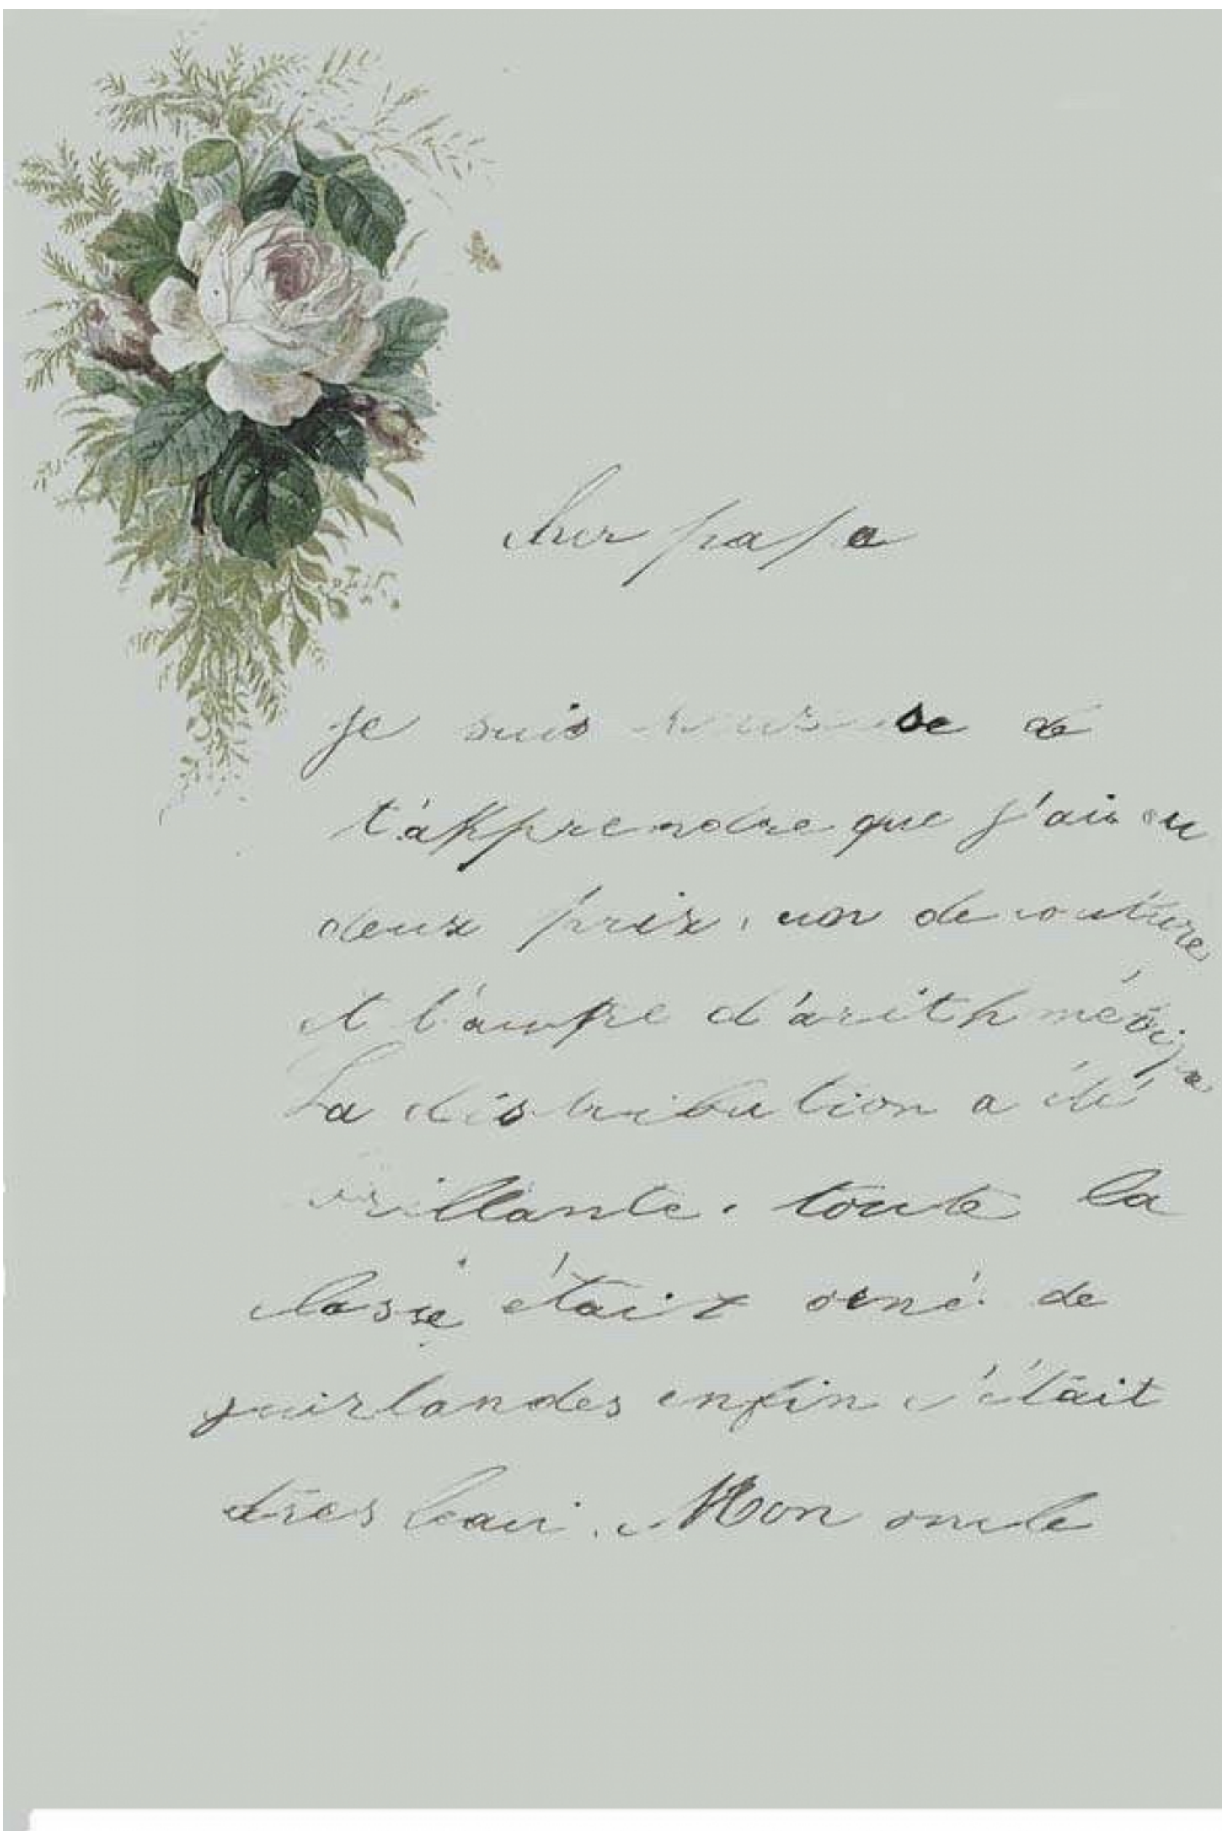 Cher papa
Je suis heureuse de
t'apprendre que j'ai eu
deux prix, un de couture
et l'autre d'arithmétique
La distribution a été
brillante. toute la
classe était orné de
guirlandes enfin c'était
très beau. Mon oncle